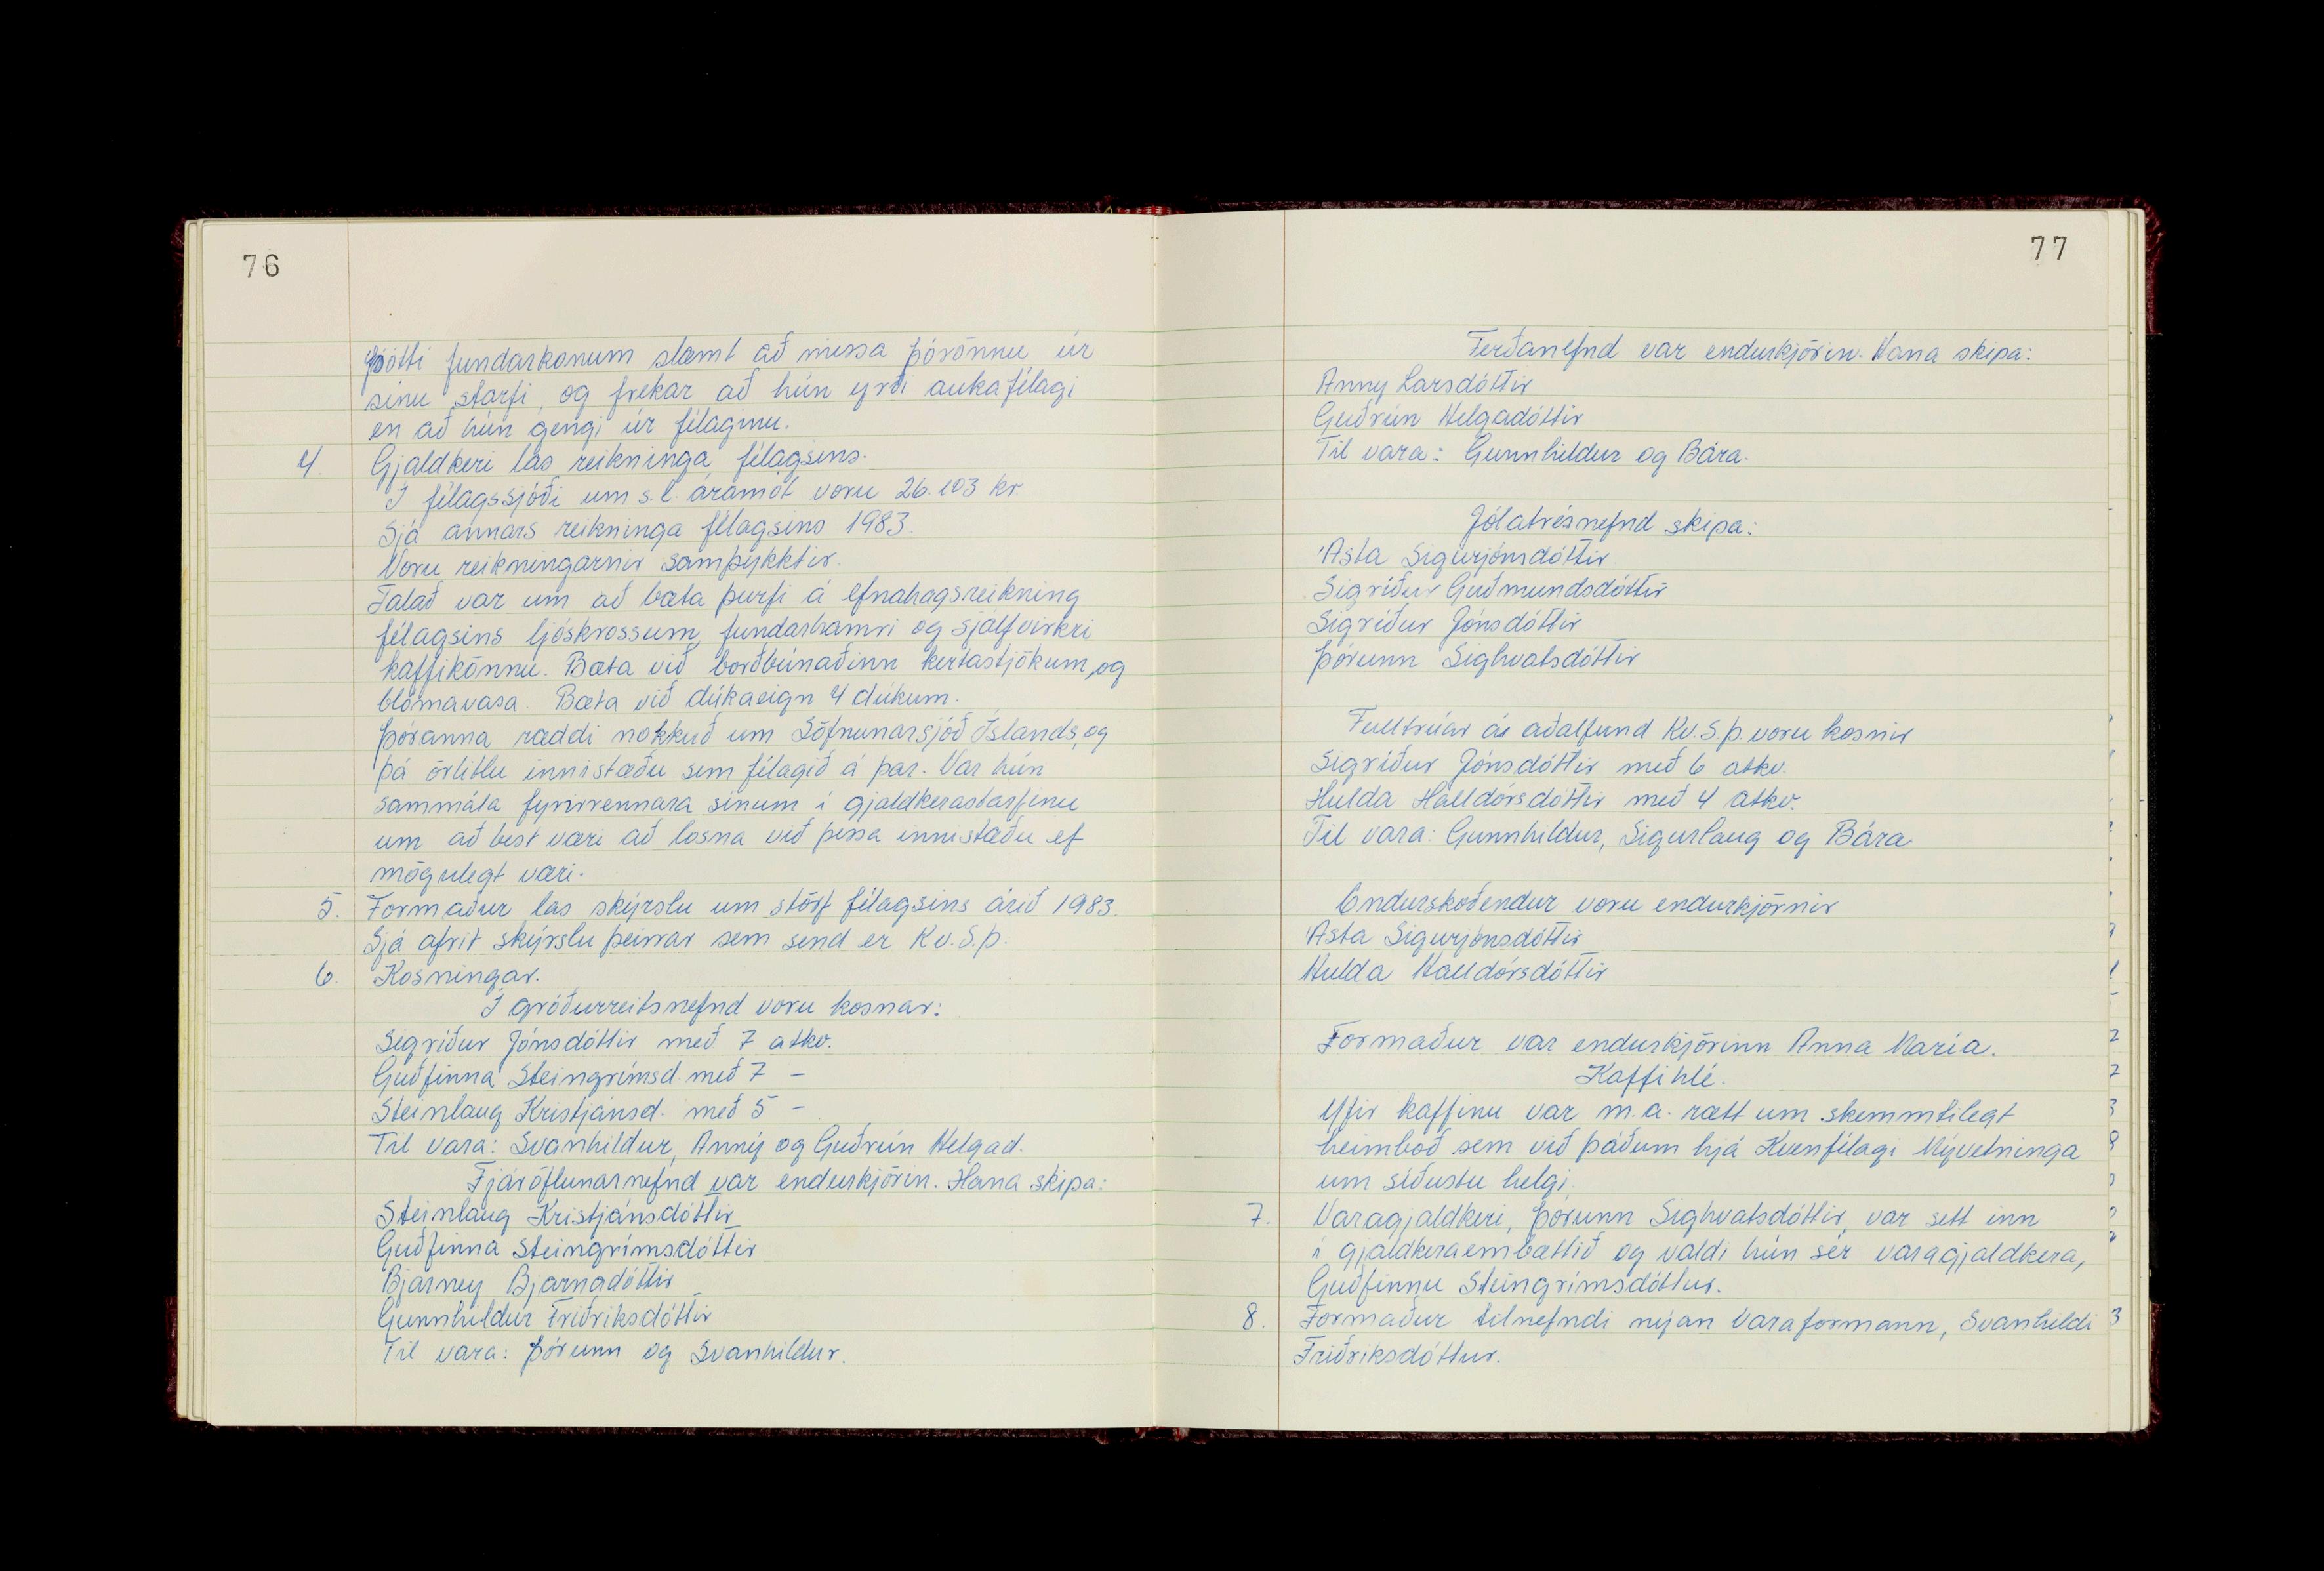 76
þótti fundarkonum slæmt að missa Þórönnu úr
sínu starfi, og frekar að hún yrði aukafélagi
en að hún gengi úr félaginu.
4. Gjaldkeri las reikninga félagsins.
Í félagssjóði um s.l. áramót voru 26.103 kr.
Sjá annars reikninga félagsins 1983.
Voru reikningarnir samþykktir.
Talað var um að bæta þurfi á efnahagsreikning
félagsins ljóskrossum, fundarhamri og sjálfvirkri
kaffikönnu. Bæta við borðbúnaðinn kertastjökum, og
blómavasa. Bæta við dúkaeign 4 dúkum.
Þóranna ræddi nokkuð um Söfnunarsjóð Íslands, og
þá örlitlu innistæðu sem félagið á þar. Var hún
sammála fyrirrennara sínum í gjaldkerastarfinu
um að best væri að losna við þessa innistæðu ef
mögulegt væri.
5. Formaður las skýrslu um störf félagsins árið 1983.
Sjá afrit skýrslu þeirrar sem send er Kv.S.þ.
6. Kosningar.
Í gróðurreitsnefnd voru kosnar:
Sigríður Jónsdóttir með 7 atkv.
Guðfinna Steingrímsd. með 7 –
Steinlaug Kristjánsd. með 5 –
Til vara: Svanhildur, Anný og Guðrún Helgad.
Fjáröflunarnefnd var endurkjörin. Hana skipa:
Steinlaug Kristjánsdóttir
Guðfinna Steingrímsdóttir
Bjarney Bjarnadóttir
Gunnhildur Friðriksdóttir
Til vara: Þórunn og Svanhildur.
77
Ferðanefnd var endurkjörin. Hana skipa:
Anny Larsdóttir
Guðrún Helgadóttir
Til vara: Gunnhildur og Bára.
Jólatrésnefnd skipa:
Ásta Sigurjónsdóttir
Sigríður Guðmundsdóttir
Sigríður Jónsdóttir
Þórunn Sighvatsdóttir
Fulltrúar á aðalfund Kv.S.þ. voru kosnir
Sigríður Jónsdóttir með 6 atkv.
Hulda Halldórsdóttir með 4 atkv.
Til vara: Gunnhildur, Sigurlaug og Bára
Endurskoðendur voru endurkjörnir
Ásta Sigurjónsdóttir
Hulda Halldórsdóttir
Formaður var endurkjörinn Anna María.
Kaffihlé.
Yfir kaffinu var m.a. rætt um skemmtilegt
heimboð sem við þáðum hjá Kvenfélagi Mývetninga
um síðustu helgi.
7. Varagjaldkeri, Þórunn Sighvatsdóttir, var sett inn
í gjaldkeraembættið og valdi hún sér varagjaldkera,
Guðfinnu Steingrímsdóttur.
8. Formaður tilnefndi nýjan varaformann, Svanhildi
Friðriksdóttur.